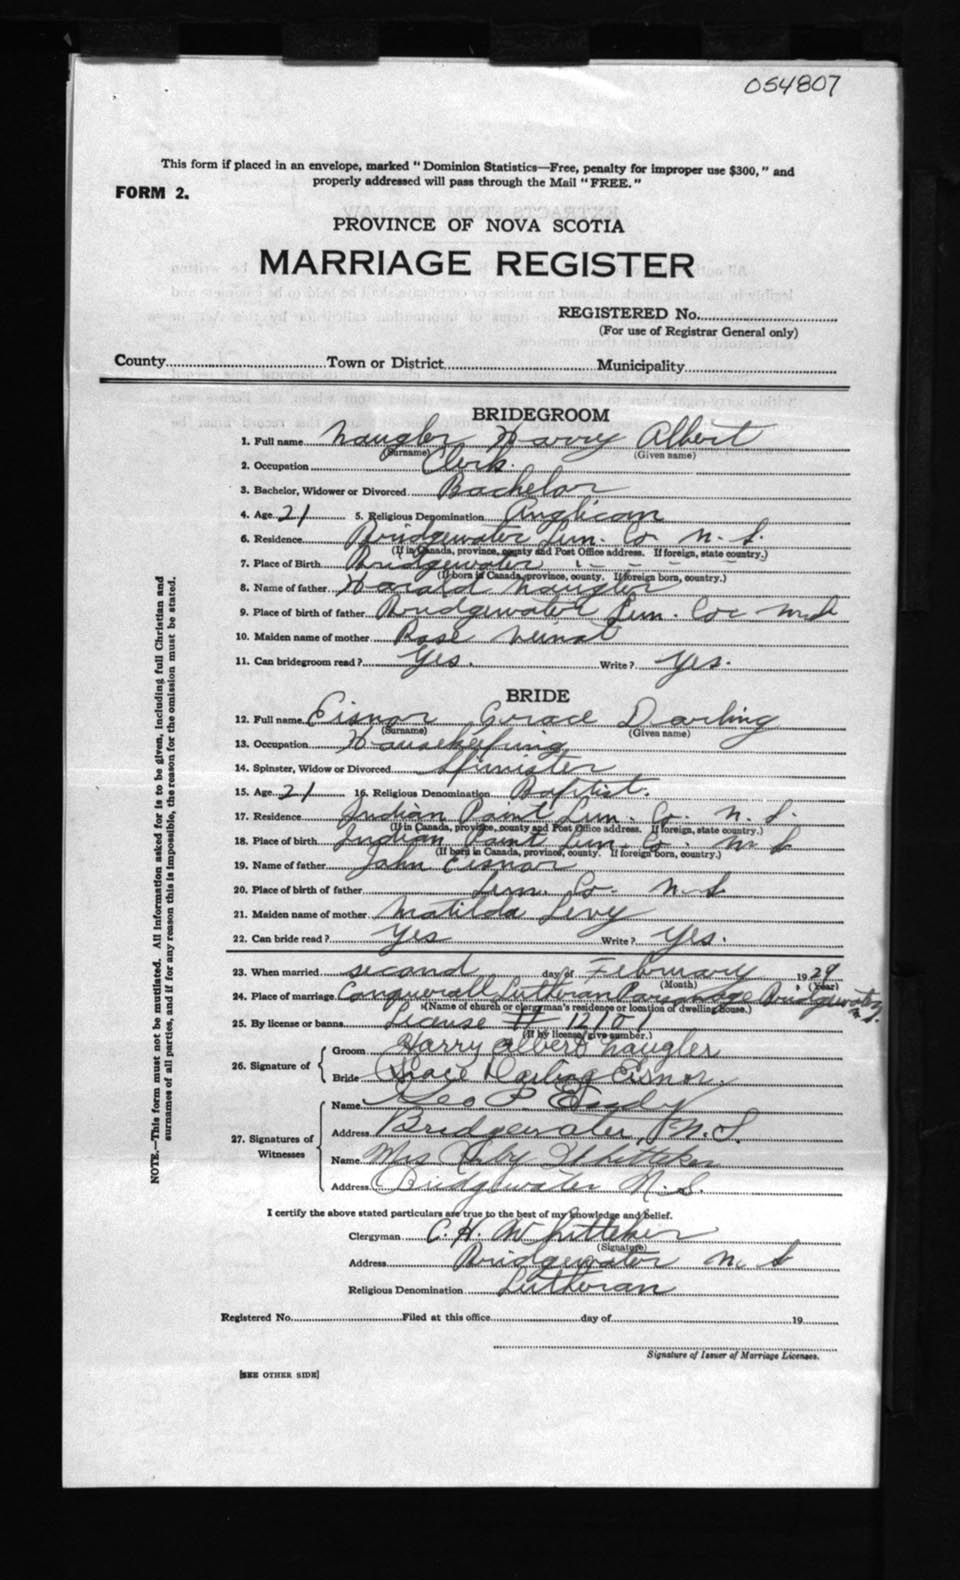 054807
This form if placed in an envelope, marked "Dominion Statistics—Free, penalty for improper use $300," and
properly addressed will pass through the Mail "FREE."
FORM 2.
PROVINCE OF NOVA SCOTIA
MARRIAGE REGISTER
REGISTERED No.
(For use of Registrar General only)
County Town or District Municipality
BRIDEGROOM
1. Full name Naugler Harry Albert
(Surname) (Given name)
2. Occupation Clerk.
3. Bachelor, Widower or Divorced Bachelor
4. Age 21 5. Religious Denomination Anglican
6. Residence Bridgewater Lun. Co N. S.
(If in Canada, province, county and Post Office address. If foreign, state country.)
7. Place of Birth Bridgewater
(If born in Canada, province, county. If foreign born, country.)
8. Name of father Harold Naugler
9. Place of birth of father Bridgewater Lun. Co N.S
10. Maiden name of mother Rose
11. Can bridegroom read? Yes. Write? Yes.
BRIDE
12. Full name Eisnor Grace Darling
(Surname) (Given name)
13. Occupation Housekeeping
14. Spinster, Widow or Divorced Spinister
15. Age 21 16. Religious Denomination Baptist.
17. Residence Indian Point Lun. Co. N. S.
(If in Canada, province, county and Post Office address. If foreign, state country.)
18. Place of birth Indian Point Lun. Co. N S
(If born in Canada, province, county. If foreign born, country.)
19. Name of father John Eisnor
20. Place of birth of father Lun. Co. N.S
21. Maiden name of mother Matilda Levy
22. Can bride read? Yes Write? Yes.
23. When married second day of February 1929
(Month) (Year)
24. Place of marriage Conquerall Lutheran Parsonage Bridgewater
N.S.
(Name of church or clergyman's residence or location of dwelling house.)
25. By license or banns License # 12101
(If by license, give number.)
26. Signature of
Groom Harry Albert Naugler
Bride Grace Darling Eisnor.
27. Signatures of
Witnesses
Name Geo P.
Address Bridgewater, N.S.
Name Mrs Whitteker
Address Bridgewater N.S.
I certify the above stated particulars are true to the best of my knowledge and belief.
Clergyman C. H. Whitteker
(Signature)
Address Bridgewater N. S
Religious Denomination Lutheran
Registered No. Filed at this office day of 19
Signature of Issuer of Marriage Licenses.
[SEE OTHER SIDE]
NOTE.—This form must not be mutilated. All information asked for is to be given, including full Christian and
surnames of all parties, and if for any reason this is impossible, the reason for the omission must be stated.